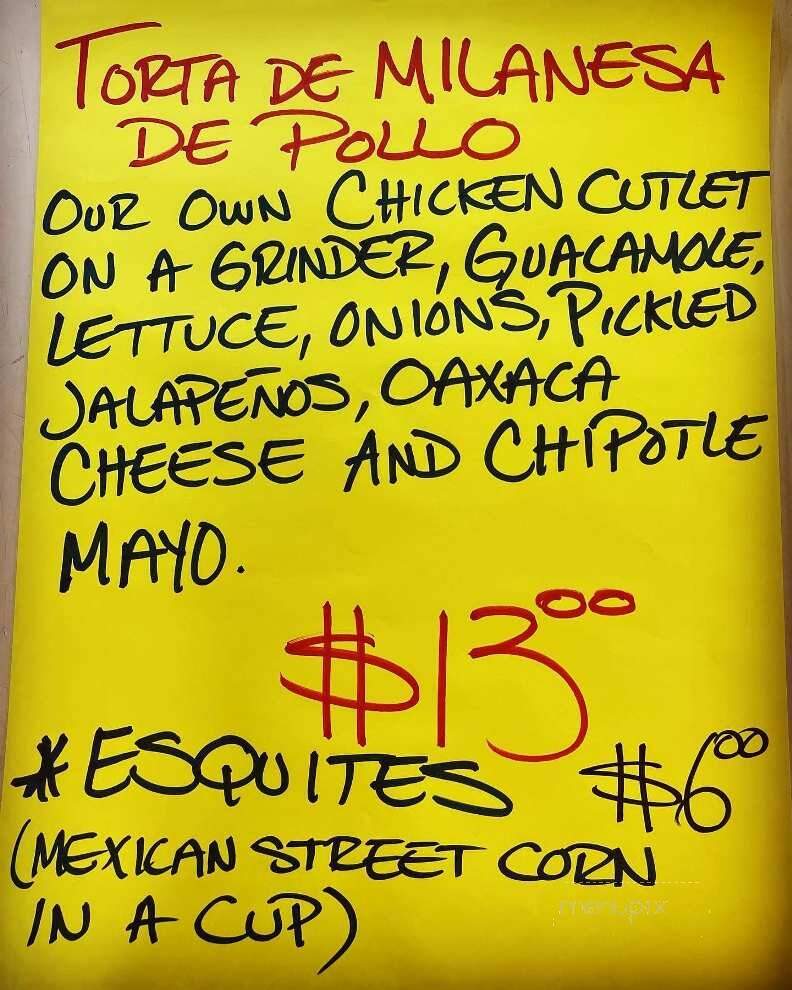 TORTA DE MILANESA
DE POLLO
OUR OWN CHICKEN CUTLET
ON A GRINDER, GUACAMOLE,
LETTUCE, ONIONS, PICKLED
JALAPEÑOS, OAXACA
CHEESE AND CHIPOTLE
MAYO.
$13.00
*ESQUITES $6.00
(MEXICAN STREET CORN
IN A CUP)
menupix